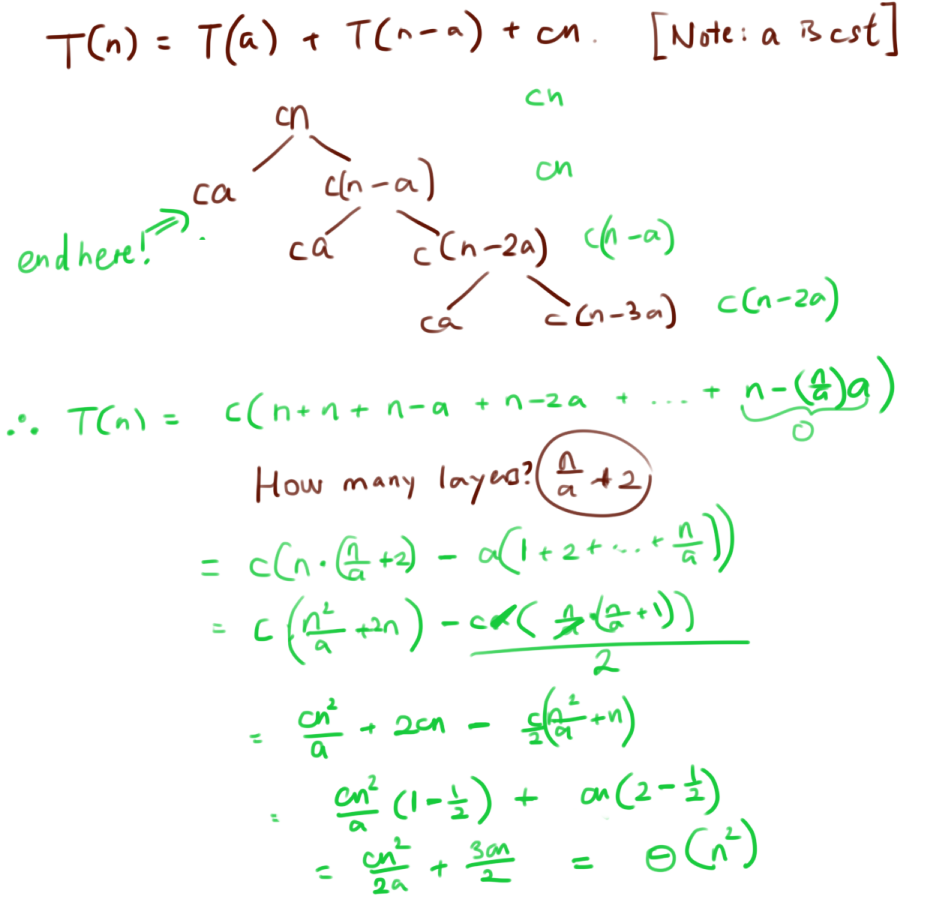 T(n) = T(a) + T(n-a) + cn. [Note: a is cst]
cn cn
ca c(n-a) cn
end here! ca c(n-2a) c(n-a)
ca c(n-3a) c(n-2a)
∴ T(n) = c(n+n + n-a + n-2a + ... + n-(n/a)a)
0
How many layers? n/a +2
= c(n·(n/a +2) - a(1+2+...+ n/a))
= c(n²/a +2n) - ca(n/a·(n/a +1))/2
= cn²/a + 2cn - c/2(n²/a +n)
= cn²/a (1-1/2) + cn(2-1/2)
= cn²/2a + 3cn/2 = Θ(n²)